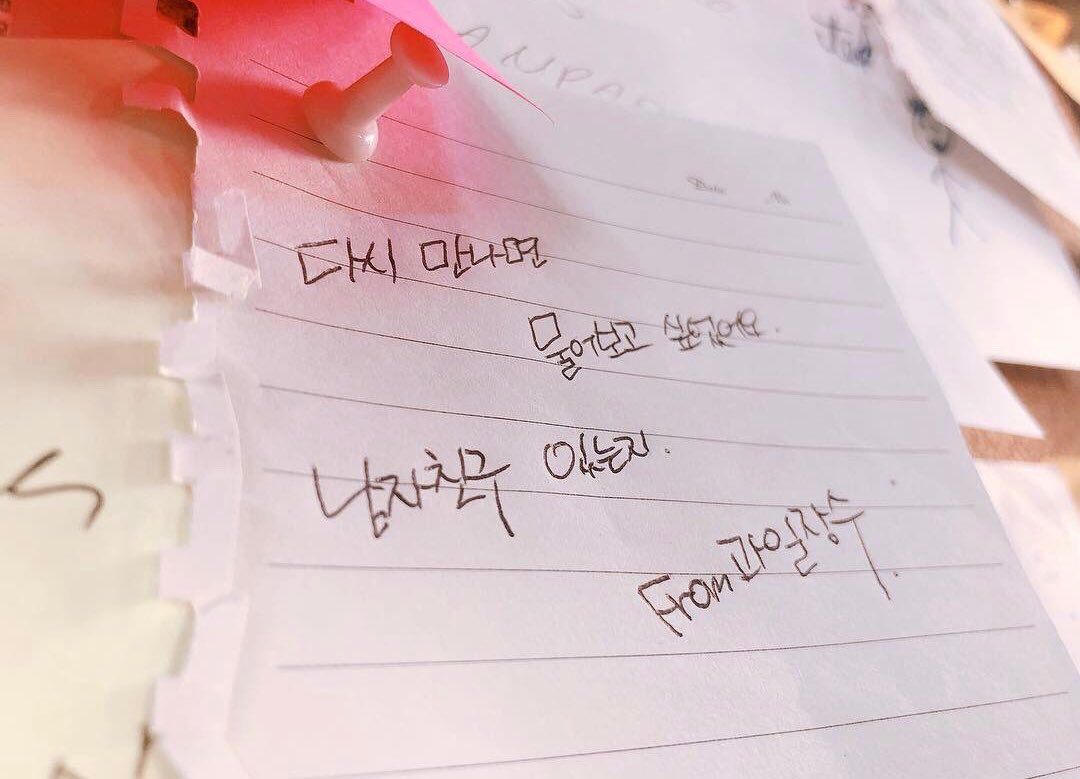 ANPA
Date No
다시 만나면
물어보고 싶었어요.
남자친구 있는지.
From 과일장수.
S